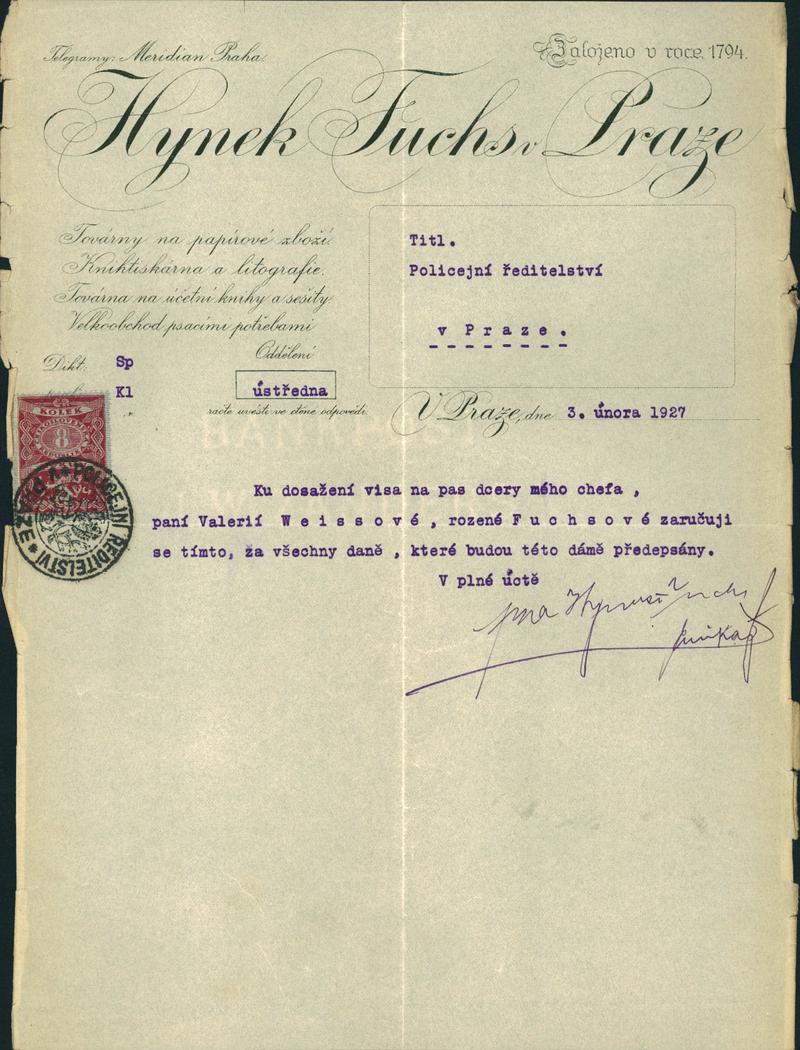 Telegramy: Meridian Praha.
Založeno v roce 1794.
Hynek Fuchs v Praze
Továrny na papírové zboží.
Knihtiskárna a litografie.
Továrna na účetní knihy a sešity
Velkoobchod psacími potřebami
Dikt: Sp
Kl
Oddělení
ústředna
račte uvésti ve ctěné odpovědi.
Titl.
Policejní ředitelství
v Praze.
V Praze, dne 3. února 1927
KOLEK
8
POLICEJNÍ ŘEDITELSTVÍ * V PRAZE *
Ku dosažení visa na pas dcery mého chefa ,
paní Valerií Weissové, rozené Fuchsové zaručuji
se tímto, za všechny daně , které budou této dámě předepsány.
V plné úctě